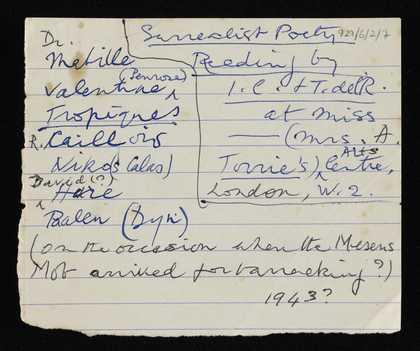 Surrealist Poetry
929/6/2/7
Reading by
I.C. & T. del R.
at Miss
— (Mrs. A.
Torrie's) Arts Centre,
London, W. 2.
Dr.
Mabille
Valentine (Penrose)
Tropiques
R. Caillois
Nikos Calas)
David (?)
Hare
Paalen (Dyn)
(on the occasion when the Mesens
Mob arrived for barracking?)
1943?